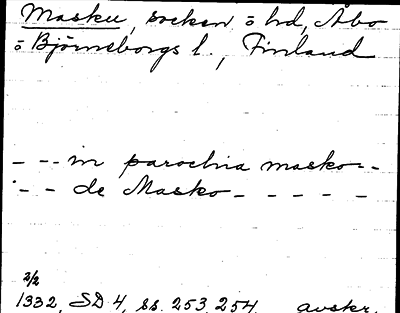 Masku, socken o hd, Åbo
o Björneborgs l., Finland
– – – in parochia masko – –
– – – de Masko – – – – –
2/2
1332, SD 4, ss. 253, 254. avskr.